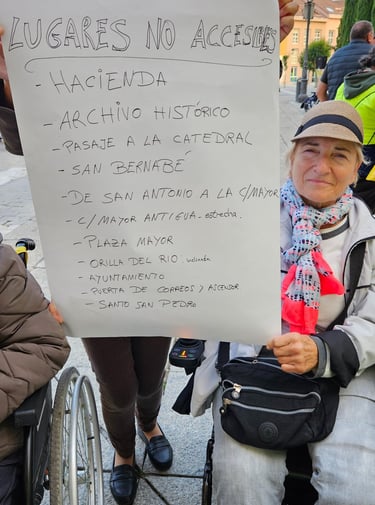 LUGARES NO ACCESIBLES
- HACIENDA
- ARCHIVO HISTÓRICO
- PASAJE A LA CATEDRAL
- SAN BERNABÉ
- DE SAN ANTONIO A LA C/MAYOR
- C/ MAYOR ANTIGUA - estrecha.
- PLAZA MAYOR
- ORILLA DEL RIO.
- AYUNTAMIENTO
- PUERTA DE CORREOS Y ASCENSOR
- SANTO SAN PEDRO